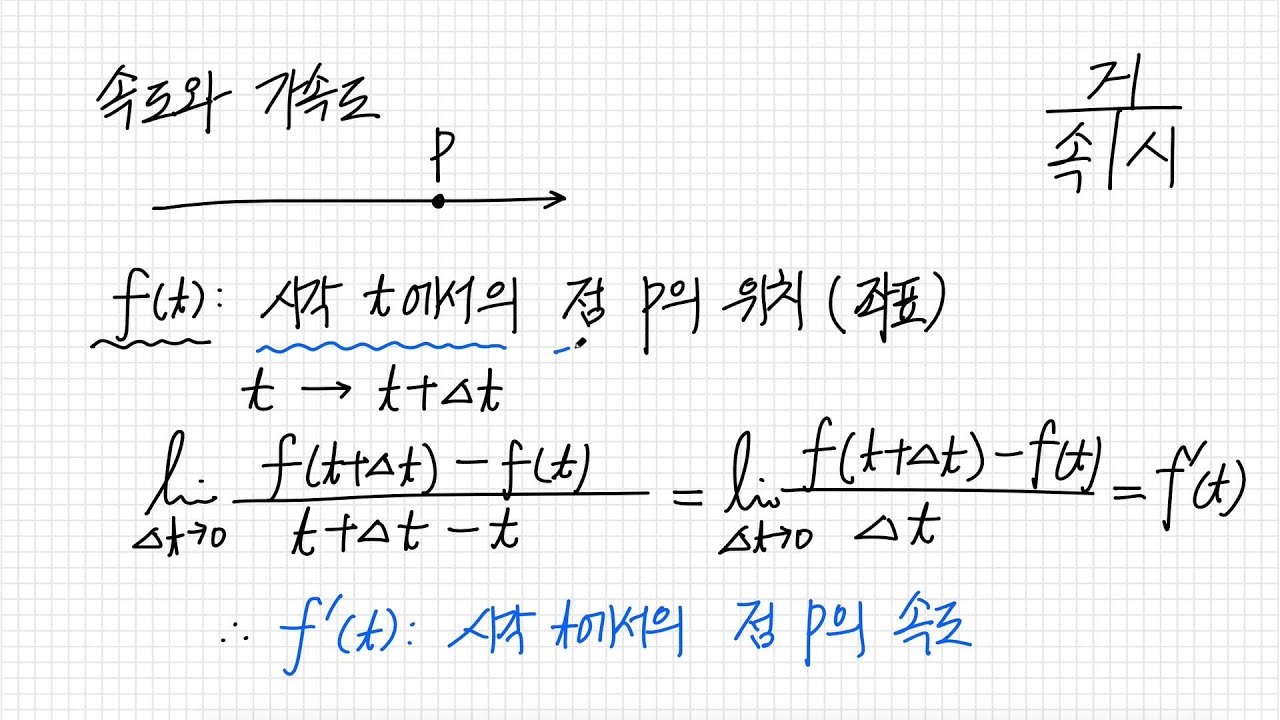 속도와 가속도
거
속 시
P
f(t): 시각 t에서의 점 P의 위치 (좌표)
t → t+Δt
lim Δt→0 f(t+Δt) - f(t) / t+Δt - t = lim Δt→0 f(t+Δt) - f(t) / Δt = f'(t)
∴ f'(t): 시각 t에서의 점 P의 속도